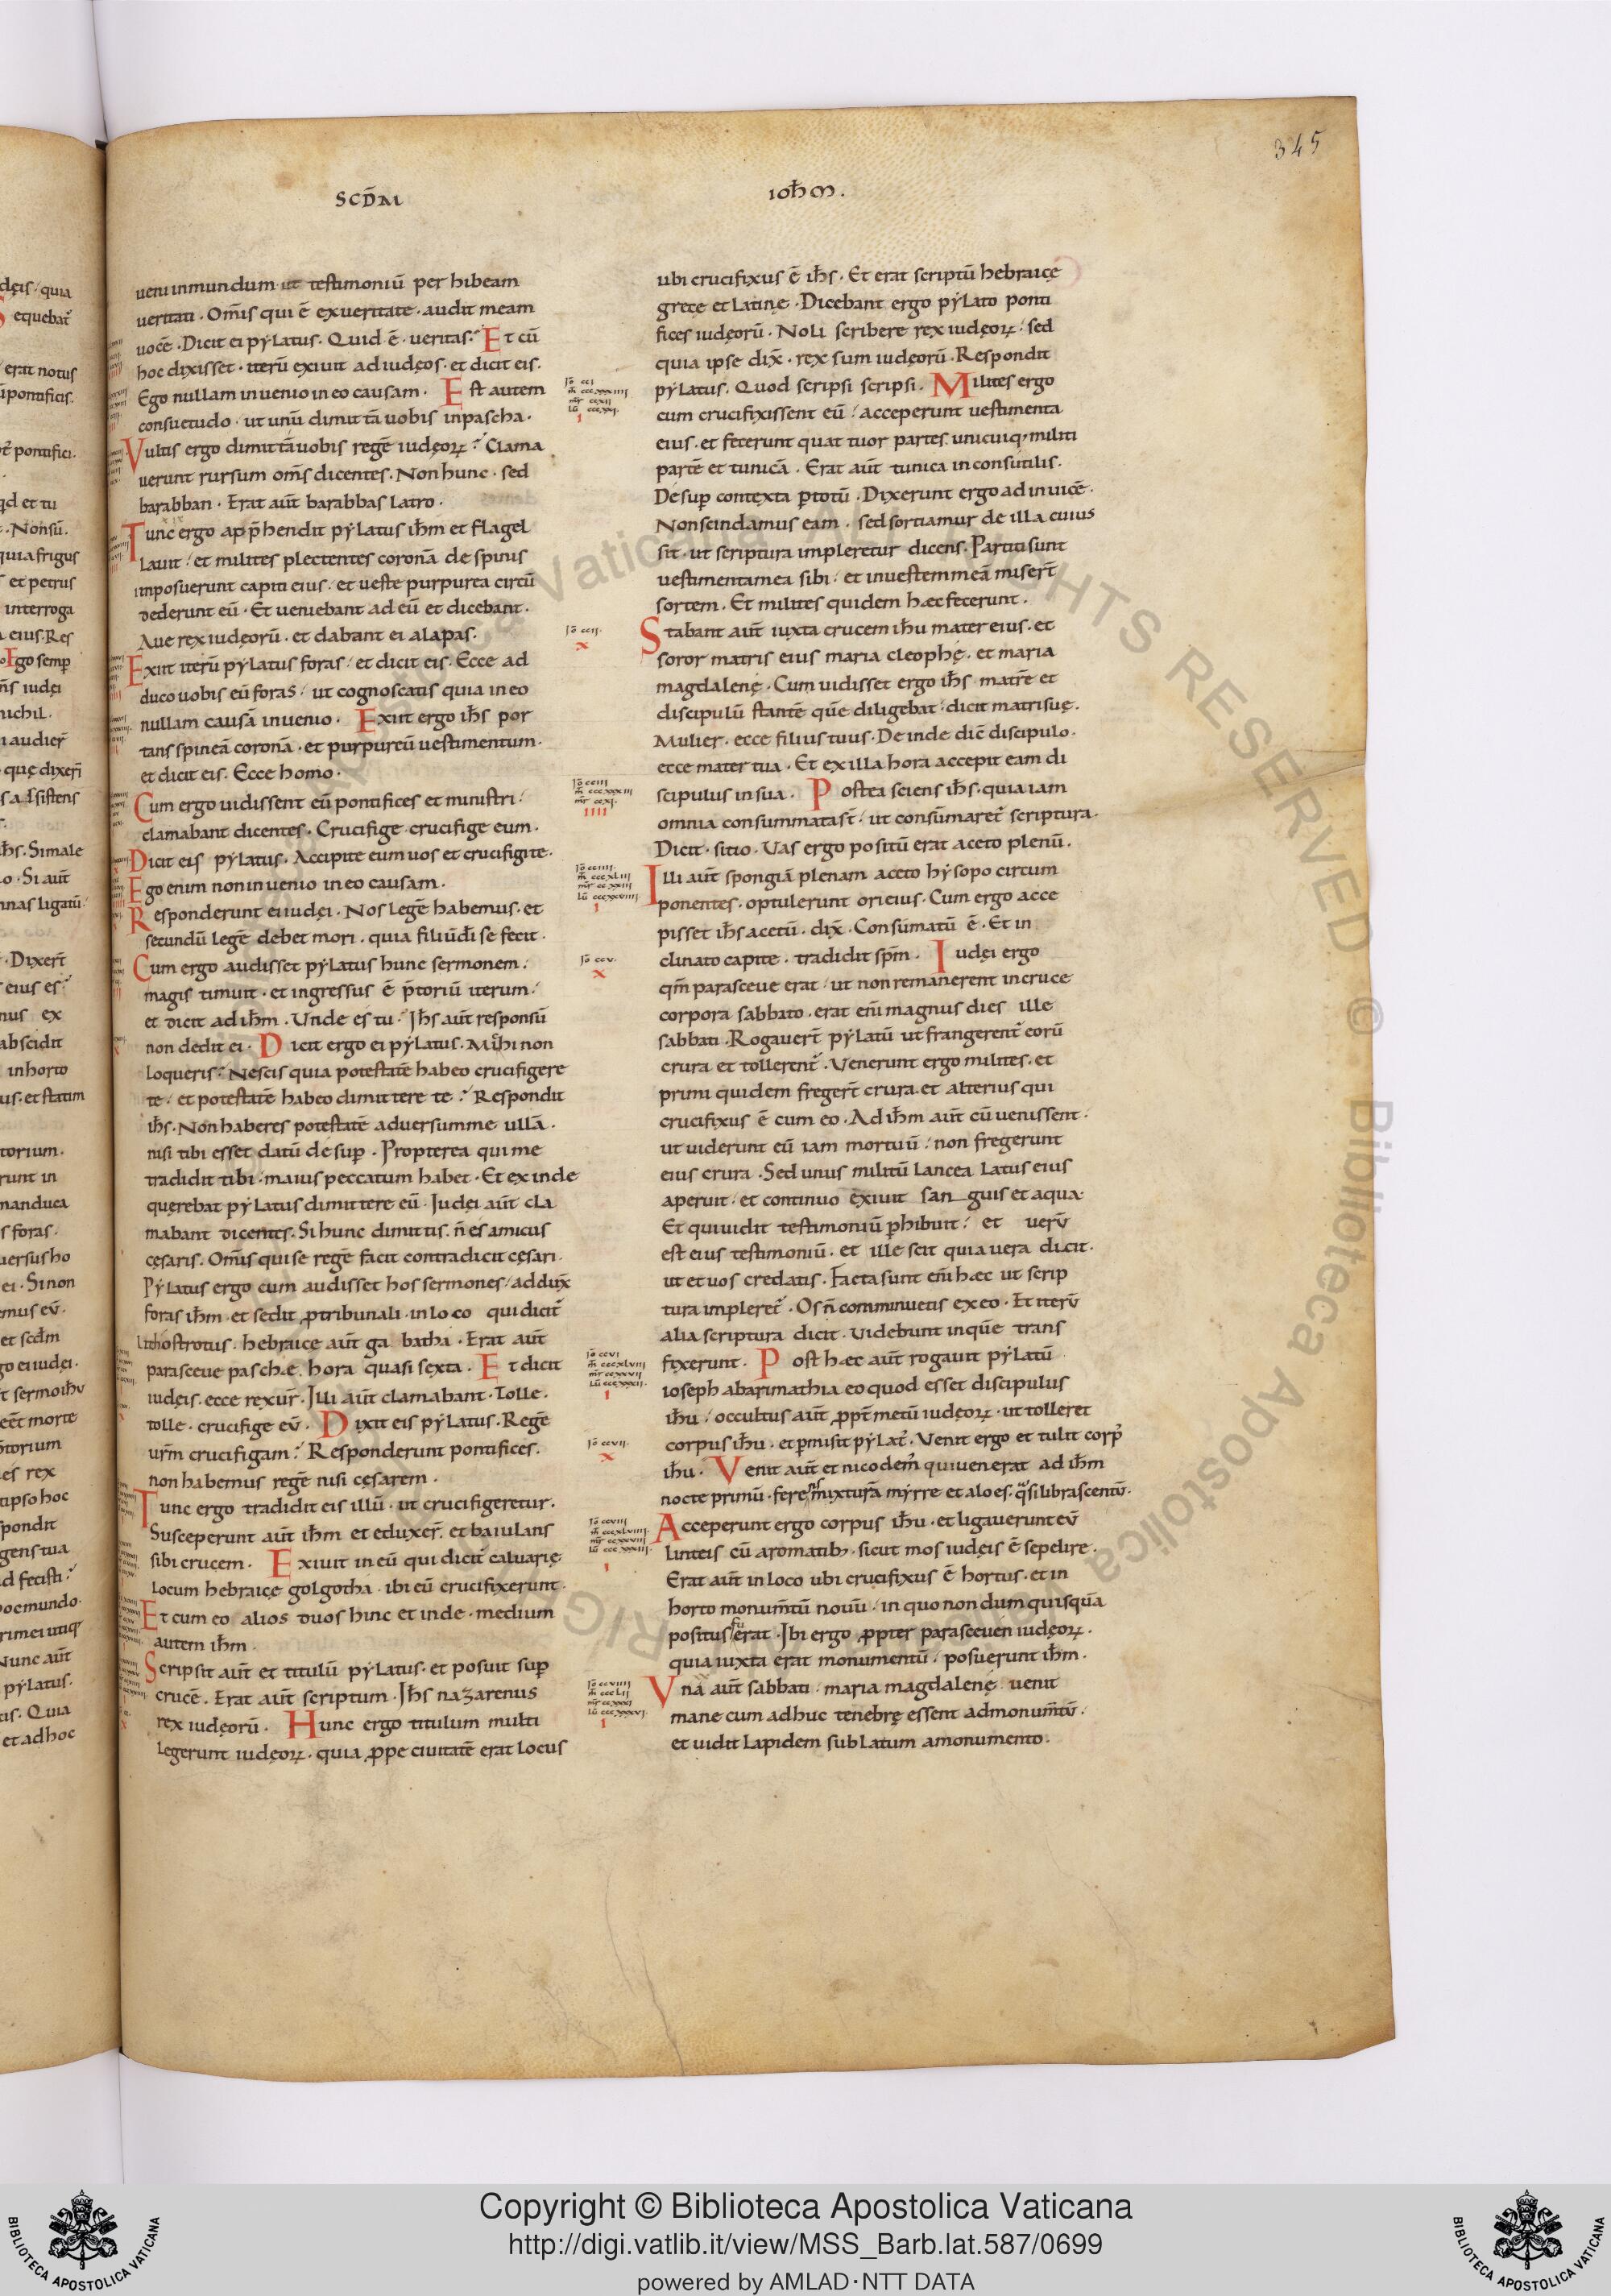 345
SCD̄M
IOH̄M.
ueni in mundum ut testimoniū per hibeam
ueritati. Om̄is qui ē ex ueritate. audit meam
uocē. Dicit ei pylatus. Quid ē ueritas? Et cū
hoc dixisset. iterū exiuit ad iudęos. et dicit eis.
Ego nullam inuenio in eo causam. Est autem
consuetudo. ut unū dimittā uobis in pascha.
Vultis ergo dimittā uobis regē iudęoꝝ? Clama
uerunt rursum om̄s dicentes. Non hunc. sed
barabban. Erat aūt barabbas latro.
Tunc ergo app̄hendit pylatus ih̄m et flagel
lauit. et milites plectentes coronā de spinis
imposuerunt capiti eius. et ueste purpurea circū
dederunt eū. Et ueniebant ad eū et dicebant.
Aue rex iudęorū. et dabant ei alapas.
Exiit iterū pylatus foras. et dicit eis. Ecce ad
duco uobis eū foras. ut cognoscatis quia in eo
nullam causā inuenio. Exiit ergo ih̄s por
tans spineā coronā. et purpureū uestimentum.
et dicit eis. Ecce homo.
Cum ergo uidissent eū pontifices et ministri.
clamabant dicentes. Crucifige crucifige eum.
Dicit eis pylatus. Accipite eum uos et crucifigite.
Ego enim non inuenio in eo causam.
Responderunt ei iudęi. Nos legē habemus. et
secundū legē debet mori. quia filiū dī se fecit.
Cum ergo audisset pylatus hunc sermonem.
magis timuit. et ingressus ē p̄toriū iterum.
et dicit ad ih̄m. Unde es tu. Ih̄s aūt responsū
non dedit ei. Dicit ergo ei pylatus. Mihi non
loqueris? Nescis quia potestatē habeo crucifigere
te. et potestatē habeo dimittere te? Respondit
ih̄s. Non haberes potestatē aduersum me ullā.
nisi tibi esset datū desuꝑ. Propterea qui me
tradidit tibi. maius peccatum habet. Et exinde
querebat pylatus dimittere eū. Iudęi aūt cla
mabant dicentes. Si hunc dimittis. n̄ es amicus
cęsaris. Om̄is qui se regē facit contradicit cęsari.
Pylatus ergo cum audisset hos sermones. addux̄
foras ih̄m. et sedit ꝓ tribunali. in loco qui dicit᷑
Lithostrotus. hebraice aūt ga batha. Erat aūt
parasceue paschę hora quasi sexta. Et dicit
iudęis. ecce rex ur̄. Illi aūt clamabant. Tolle.
tolle. crucifige eū. Dixit eis pylatus. Regē
ur̄m crucifigam? Responderunt pontifices.
non habemus regē nisi cęsarem.
Tunc ergo tradidit eis illū. ut crucifigeretur.
Susceperunt aūt ih̄m et eduxer̄. et baiulans
sibi crucem. Exiuit in eū qui dicit᷑ caluarię
locum hebraicę golgotha. ibi eū crucifixerunt.
Et cum eo alios duos hinc et inde. medium
autem ih̄m.
Scripsit aūt et titulū pylatus. et posuit suꝑ
crucē. Erat aūt scriptum. Ih̄s nazarenus
rex iudęorū. Hunc ergo titulum multi
legerunt iudęoꝝ. quia ꝓpe ciuitatē erat locus
ubi crucifixus ē ih̄s. Et erat scriptū hebraicę
grecę et latinę. Dicebant ergo pylato ponti
fices iudęorū. Noli scribere rex iudęoꝝ. sed
quia ipse dix̄. rex sum iudęorū. Respondit
pylatus. Quod scripsi scripsi. Milites ergo
cum crucifixissent eū. acceperunt uestimenta
eius. et fecerunt quattuor partes. unicuiq; militi
partē et tunicā. Erat aūt tunica inconsutilis.
Desuꝑ contexta ꝑ totū. Dixerunt ergo ad inuicē.
Non scindamus eam. sed sortiamur de illa cuius
sit. ut scriptura impleretur dicens. Partiti sunt
uestimenta mea sibi. et in uestem meā miser̄t
sortem. Et milites quidem hæc fecerunt.
Stabant aūt iuxta crucem ih̄u mater eius. et
soror matris eius maria cleophę. et maria
magdalenę. Cum uidisset ergo ih̄s matrē et
discipulū stantē quē diligebat. dicit matri suę.
Mulier. ecce filius tuus. Deinde dic̄ discipulo.
ecce mater tua. Et ex illa hora accepit eam di
scipulus in sua. Postea sciens ih̄s. quia iam
omnia consummata st̄. ut consūmaret᷑ scriptura.
Dicit. sitio. Vas ergo positū erat aceto plenū.
Illi aūt spongiā plenam aceto hysopo circum
ponentes. optulerunt ori eius. Cum ergo acce
pisset ih̄s acetū. dix̄. Consūmatū ē. Et in
clinato capite. tradidit sp̄m. Iudęi ergo
qm̄ parasceue erat. ut non remanerent in cruce
corpora sabbato. erat eni̅ magnus dies ille
sabbati. Rogauer̄t pylatū ut frangerent᷑ eorū
crura et tollerent᷑. Venerunt ergo milites. et
primi quidem freger̄t crura. et alterius qui
crucifixus ē cum eo. Ad ih̄m aūt cū uenissent.
ut uiderunt eū iam mortuū. non fregerunt
eius crura. Sed unus militū lancea latus eius
aperuit. et continuo exiuit san guis et aqua.
Et qui uidit testimoniū ꝑhibuit. et uerū
est eius testimoniū. et ille scit quia uera dicit.
ut et uos credatis. Facta sunt eni̅ hæc ut scrip
tura impleret᷑. Os n̄ comminuetis ex eo. Et iterū
alia scriptura dicit. Uidebunt in quē trans
fixerunt. Post hæc aūt rogauit pylatū
ioseph ab arimathia eo quod esset discipulus
ih̄u. occultus aūt ꝓpt̄ metū iudęoꝝ. ut tolleret
corpus ih̄u. et ꝑmisit pylat᷒. Venit ergo et tulit corp᷒
ih̄u. Venit aūt et nicodem᷒ qui uenerat ad ih̄m
nocte primū. ferens mixturā myrre et aloes. qͣsi libras centū.
Acceperunt ergo corpus ih̄u. et ligauerunt eū
linteis cū aromatib;. sicut mos iudęis ē sepelire.
Erat aūt in loco ubi crucifixus ē hortus. et in
horto monum̄tū nouū. in quo nondum quisquā
positus erat. Ibi ergo ꝓpter parasceuen iudęoꝝ.
quia iuxta erat monumentū. posuerunt ih̄m.
Vna aūt sabbati. maria magdalenę uenit
mane cum adhuc tenebrę essent ad monum̄tū.
et uidit lapidem sublatum a monumento.
Copyright © Biblioteca Apostolica Vaticana
http://digi.vatlib.it/view/MSS_Barb.lat.587/0699
powered by AMLAD·NTT DATA
BIBLIOTECA APOSTOLICA VATICANA
BIBLIOTECA APOSTOLICA VATICANA